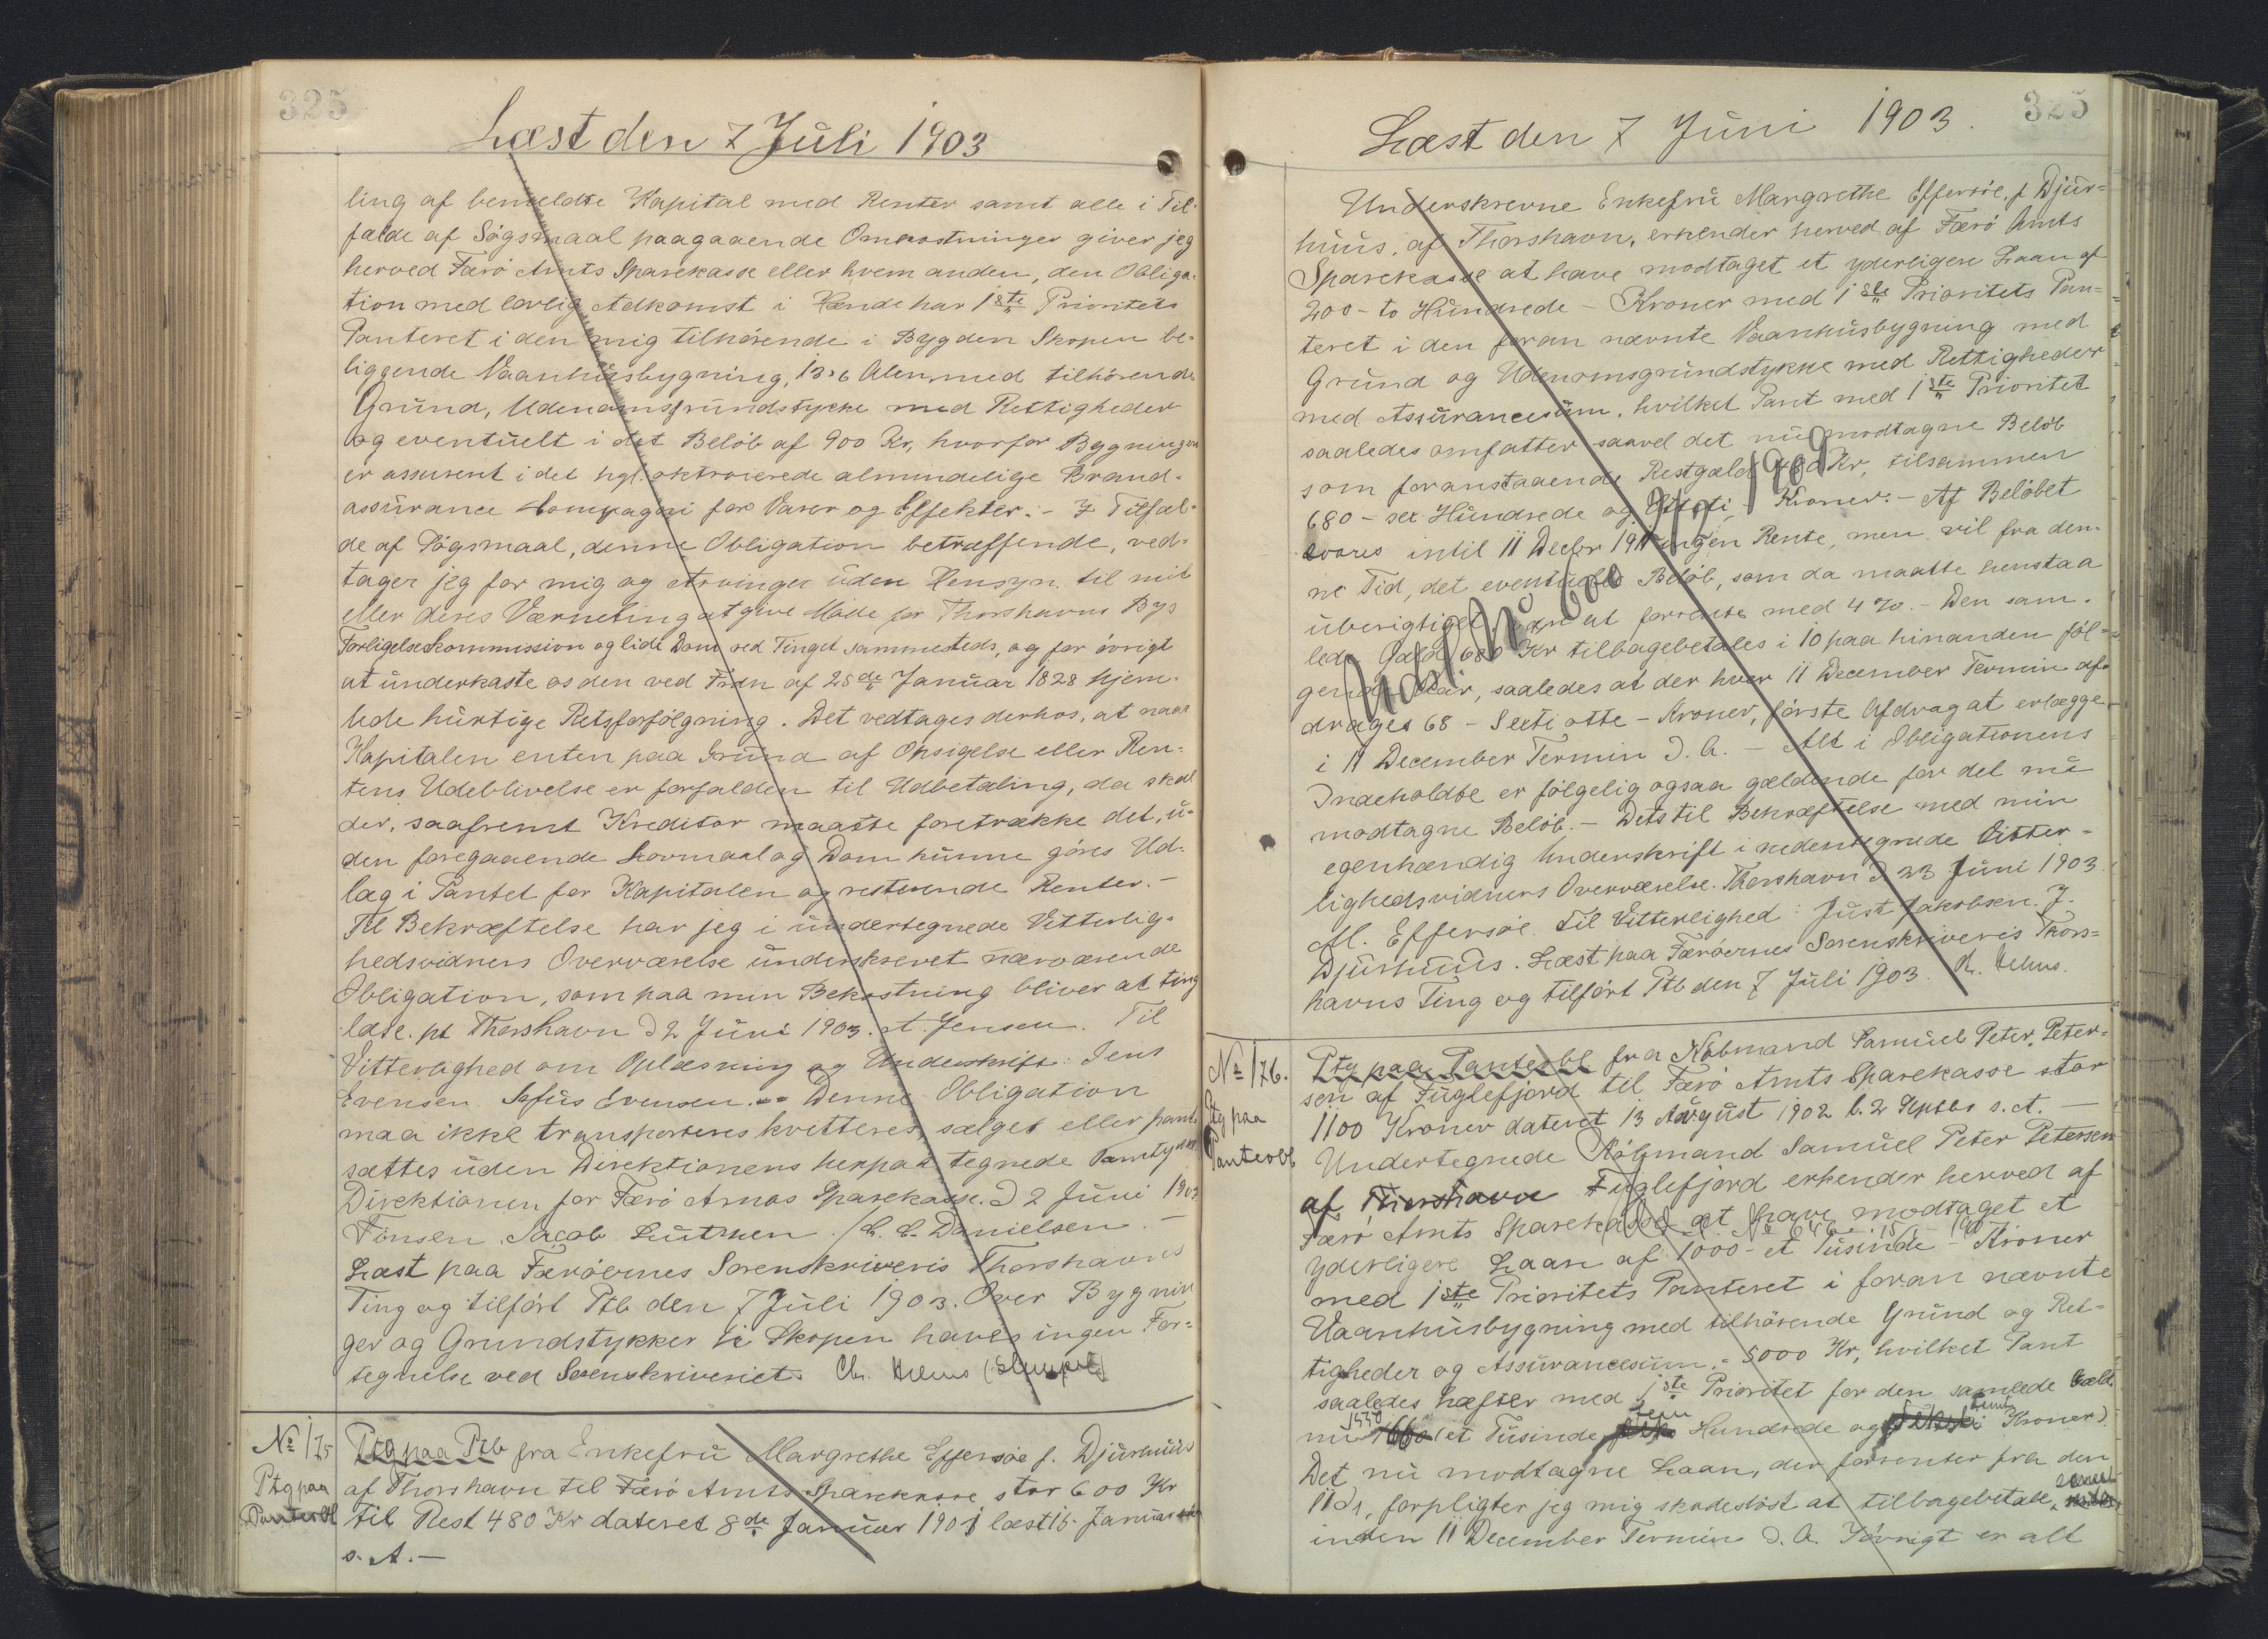 325
Læst den 7 Juli 1903
ling af bemeldte Kapital med Renter samt alle i Til-
fælde af Søgsmaal paagaaende Omkostninger giver jeg
herved Færø Amts Sparekasse eller hvem anden, den Obliga-
tion med lovlig Adkomst i Hænde har 1ste Prioritets
Panteret i den mig tilhørende i Bygden Skopen be-
liggende Vaanhusbygning, 13 x 6 Alen, med tilhørende
Grund, Udenomsgrundstykke med Rettigheder
og eventuelt i det Beløb af 900 Kr, hvorfor Bygningen
er assureret i det kgl. oktroierede almindelige Brand-
assurance Kompagni for Varer og Effekter. - I Tilfæl-
de af Søgsmaal, denne Obligation betræffende, ved-
tager jeg for mig og Arvinger uden Hensyn til mit
eller deres Værneting at give Møde for Thorshavns Bys
Forligelseskommission og lide Dom ved Tinget sammesteds, og for øvrigt
at underkaste os den ved Frdn af 25de Januar 1828 hjem-
lede hurtige Retsforfølgning. Det vedtages derhos, at naar
Kapitalen enten paa Grund af Opsigelse eller Ren-
tens Udeblivelse er forfalden til Udbetaling, da skal
der, saafremt Kreditor maatte foretrække det, u-
den foregaaende Lovmaal og Dom kunne gøres Ud-
læg i Pantet for Kapitalen og resterende Renter. -
Til Bekræftelse har jeg i undertegnede Vitterlig-
hedsvidners Overværelse underskrevet nærværende
Obligation, som paa min Bekostning bliver at ting
læse. pt Thorshavn d 2 Juni 1903. A. Jensen. Til
Vitterlighed om Oplæsning og Underskrift: Jens
Evensen. Sofus Evensen. -- Denne Obligation
maa ikke transporteres kvitteres, sælges eller pant-
sættes uden Direktionens herpaa tegnede Samtykke
Direktionen for Færø Amts Sparekasse. d 2 Juni 1903
Finsen. Jacob Lützen. / C. C. Danielsen. -
Læst paa Færøernes Sorenskriveris Thorshavns
Ting og tilført Ptb den 7 Juli 1903. Over Bygnin
ger og Grundstykker i Skopen haves ingen For-
tegnelse ved Sorenskriveriet. Chr. Helms
No 175
Ptg paa
Panteobl
Ptg paa Ptb fra Enkefru Margrethe Effersøe f. Djurhuus
af Thorshavn til Færø Amts Sparekasse stor 600 Kr
til Rest 480 Kr dateret 8de Januar 1901 læst 15 Januar
s. A. -
325
Læst den 7 Juni 1903.
Underskrevne Enkefru Margrethe Effersøe, f Djur-
huus, af Thorshavn, erkender herved af Færø Amts
Sparekasse at have modtaget et yderligere Laan af
200 - to Hundrede - Kroner med 1ste Prioritets Pan-
teret i den foran nævnte Vaanhusbygning med
Grund og Udenomsgrundstykke med Rettigheder
med Assurancesum, hvilket Pant med 1ste Prioritet
saaledes omfatter saavel det nu modtagne Beløb
som foranstaaende Restgæld 480 Kr, tilsammen
680 - sex Hundrede og Otteti - Kroner. - Af Beløbet
svares intil 11 Decbr 19 ingen Rente, men vil fra den-
ne Tid, det eventuelle Beløb, som da maatte henstaa
uberigtiget at forrente med 4 %. - Den sam-
lede Gæld 680 Kr tilbagebetales i 10 paa hinanden føl-
gende Aar, saaledes at der hver 11 December Termin af-
drages 68 - Sexti otte - Kroner, første Afdrag at erlægge
i 11 December Termin d. A. - Alt i Obligationens
Indeholdte er følgelig ogsaa gældende for det nu
modtagne Beløb. - Dets til Bekræftelse med min
egenhændig Underskrift i nedentegnede Vitter-
lighedsvidners Overværelse. Thorshavn d 23 Juni 1903.
M. Effersøe. Til Vitterlighed: Just Jakobsen. J.
Djurhuus. Læst paa Færøernes Sorenskriveris Thors-
havns Ting og tilført Ptb den 7 Juli 1903. Ch. Helms.
No 176.
Ptg paa
Panteobl
Ptg paa Panteobl fra Købmand Samuel Peter Peter-
sen af Fuglefjord til Færø Amts Sparekasse stor
1100 Kroner dateret 13 August 1902 l. 2 Septbr s. A. -
Undertegnede Købmand Samuel Peter Petersen
af Thorshavn Fuglefjord erkender herved af
Færø Amts Sparekasse at have modtaget et
yderligere Laan af 1000 - et Tusinde - Kroner
med 1ste Prioritets Panteret i foran nævnte
Vaanhusbygning med tilhørende Grund og Ret-
tigheder og Assurancesum. - 5000 Kr, hvilket Pant
saaledes hæfter med 1ste Prioritet for den samlede Gæld
nu (et Tusinde fem Hundrede og Kroner)
Det nu modtagne Laan, der forrenter fra den
11 d. , forpligter jeg mig skadesløst at tilbagebetale, senest
inden 11 December Termin d. A. Iøvrigt er alt